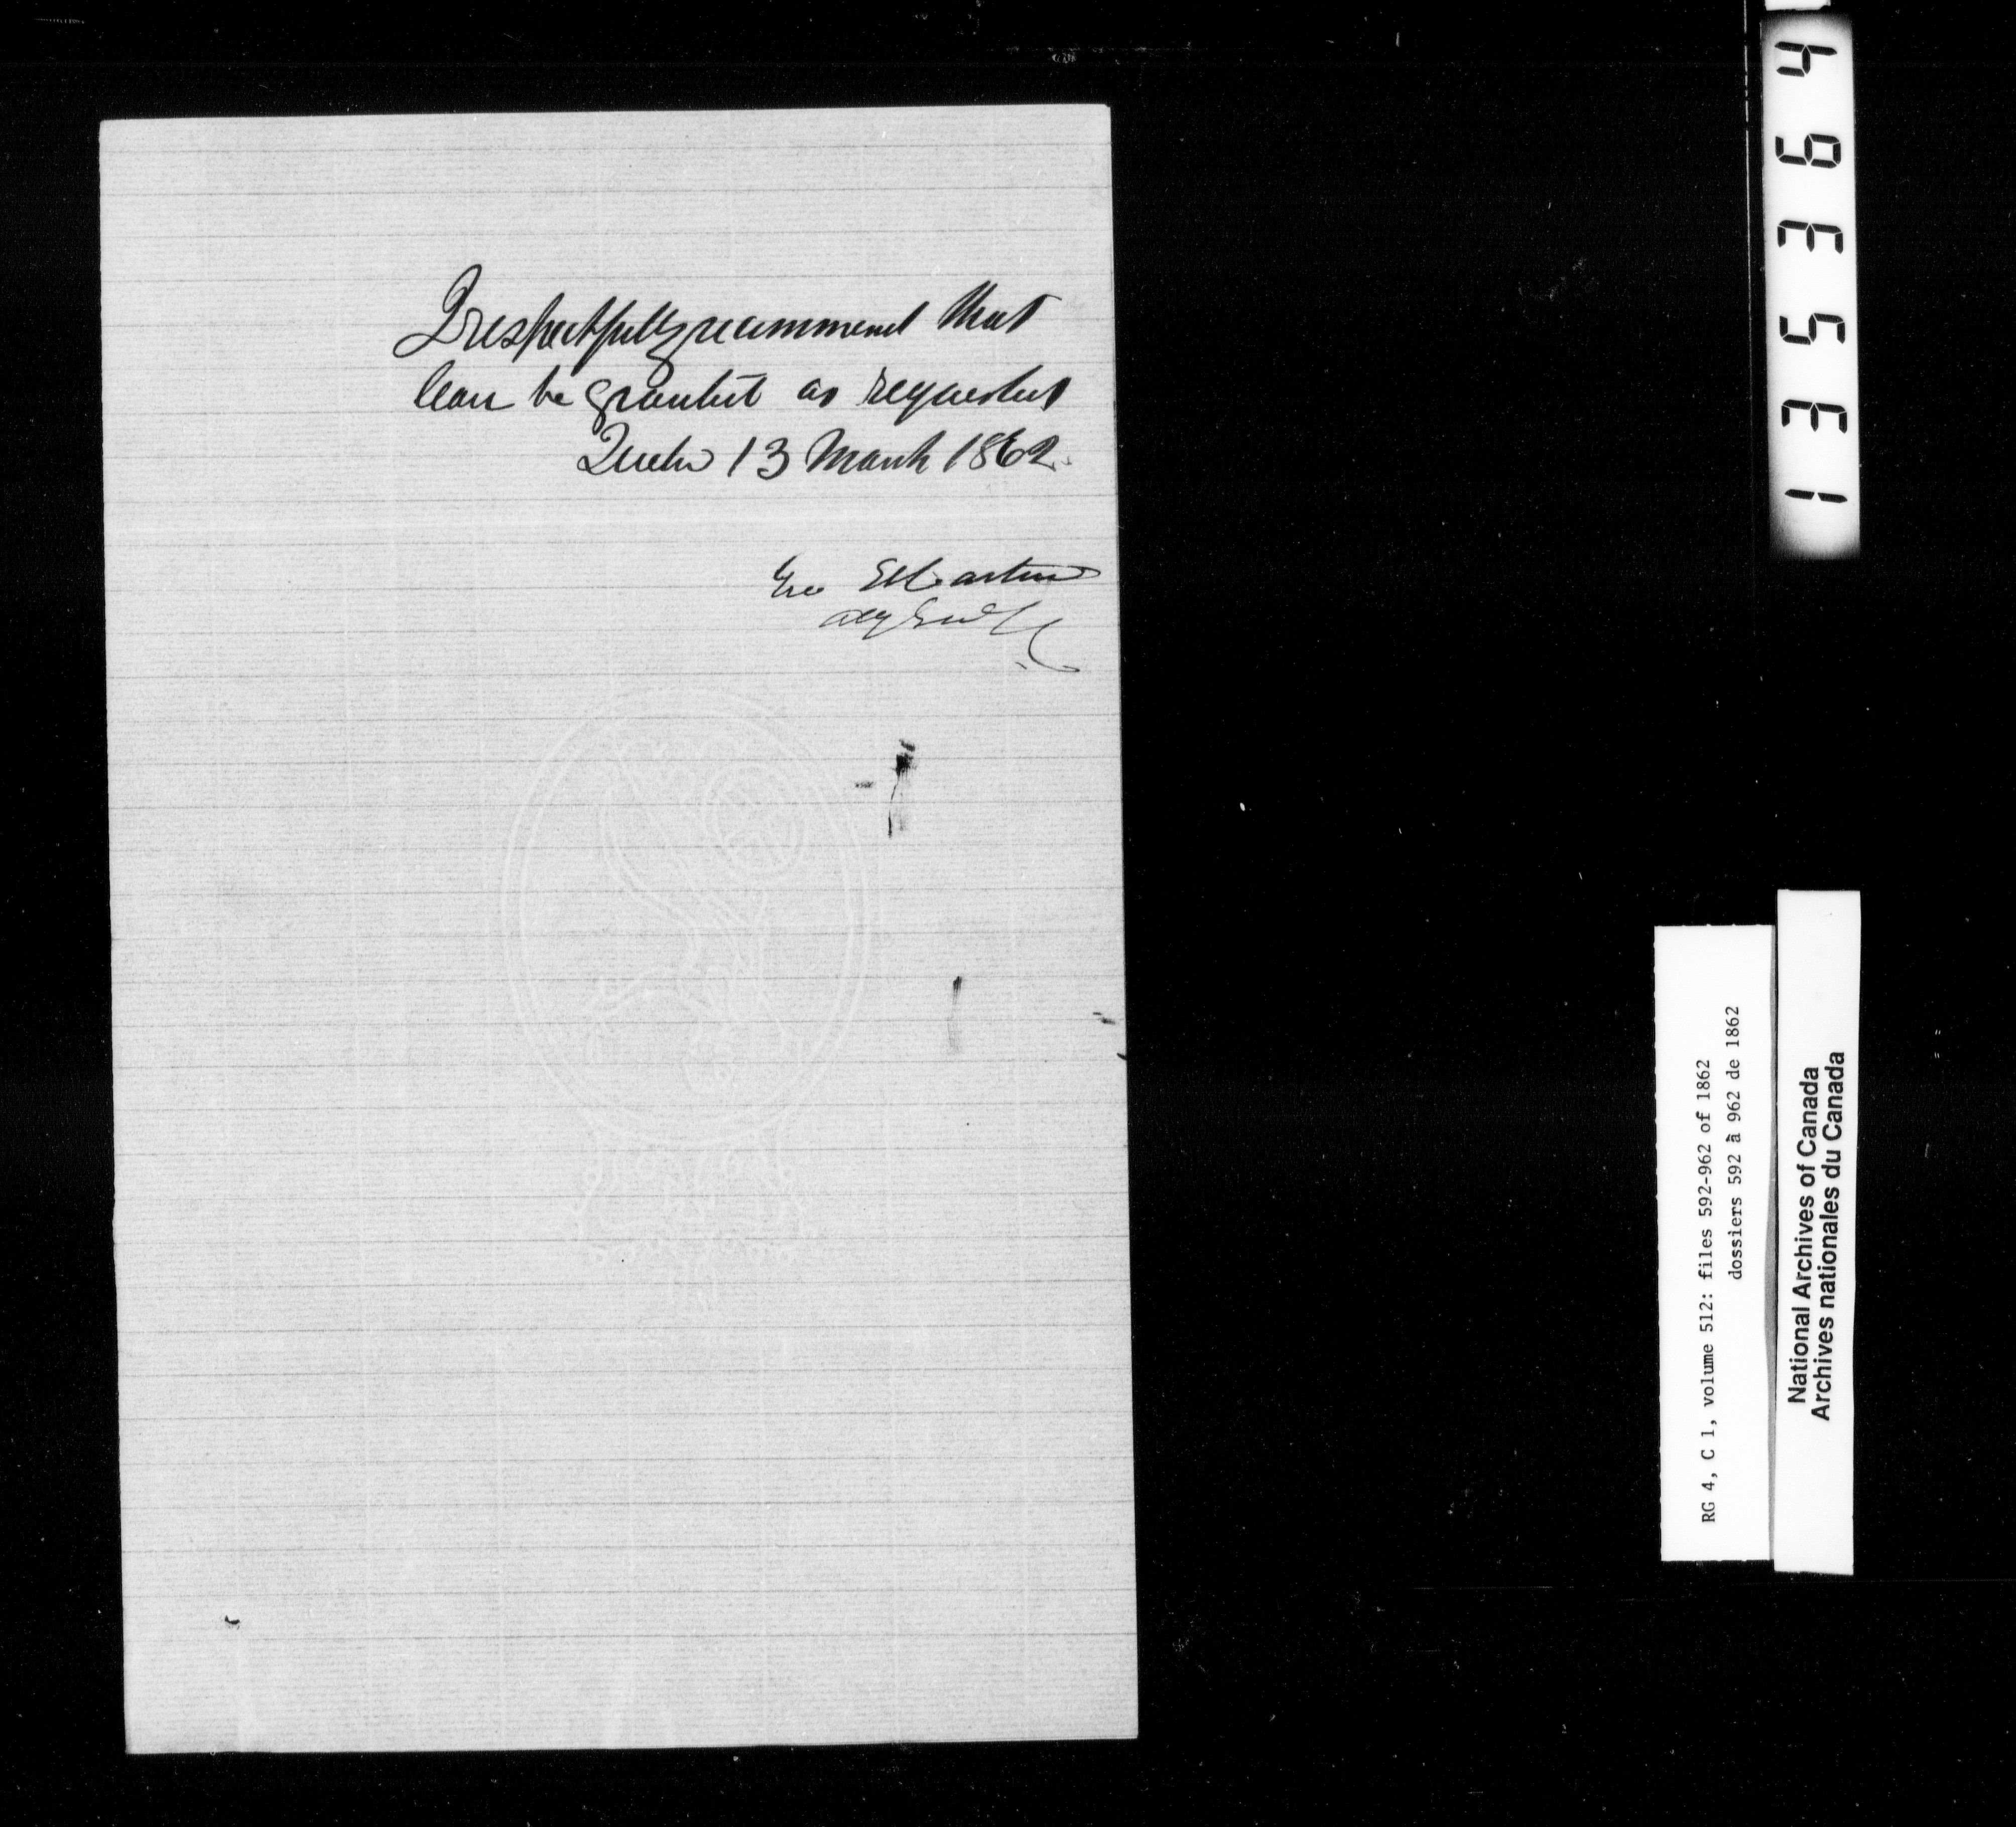 I respectfully recommend that
leave be granted as requested
Quebec 13 March 1862.
Geo Et Cartier
Atty Genl LC
135364
RG 4, C 1, volume 512: files 592-962 of 1862
dossiers 592 à 962 de 1862
National Archives of Canada
Archives nationales du Canada